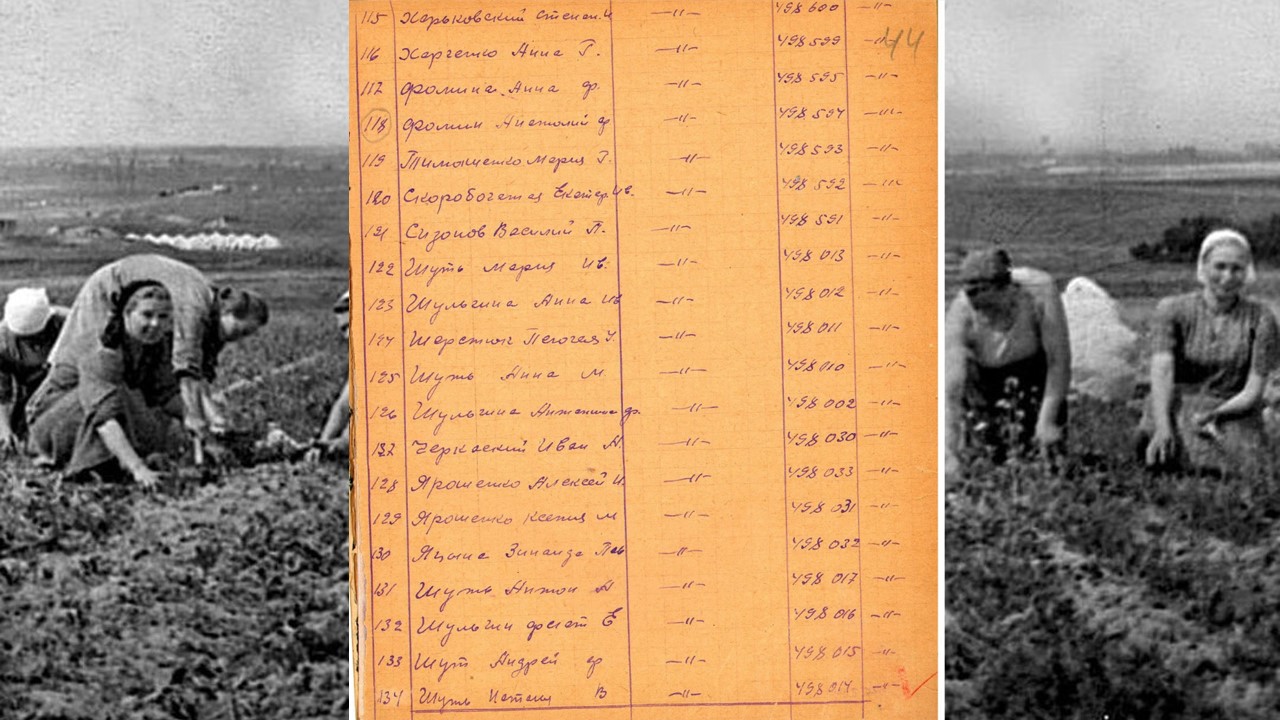 115 Харьковский Степан. И —"— 498 600 —"—
116 Харченко Анна Г. —"— 498 599 —"— 44
117 Фомина Анна Ф. —"— 498 595 —"—
118 Фомин Анатолий Ф —"— 498 594 —"—
119 Тимошенко Мария Г. —"— 498 593 —"—
120 Скоробогатая Екатер. Ив. —"— 498 592 —"—
121 Сизонов Василий П. —"— 498 591 —"—
122 Шуть Мария Ив. —"— 498 013 —"—
123 Шульгина Анна Ив —"— 498 012 —"—
124 Шерстюк —"— 498 011 —"—
125 Шуть Анна М. —"— 498 010 —"—
126 Шульгина Антонина Ф. —"— 498 002 —"—
127 Черкаский Иван А. —"— 498 030 —"—
128 Ярошенко Алексей И. —"— 498 033 —"—
129 Ярошенко Ксения М —"— 498 031 —"—
130 Яцына Зинаида Пав —"— 498 032 —"—
131 Шуть Антон А —"— 498 017 —"—
132 Шульгин Феют Е —"— 498 016 —"—
133 Шут Андрей Ф —"— 498 015 —"—
134 Шуть Наталия В —"— 498 014 —"—